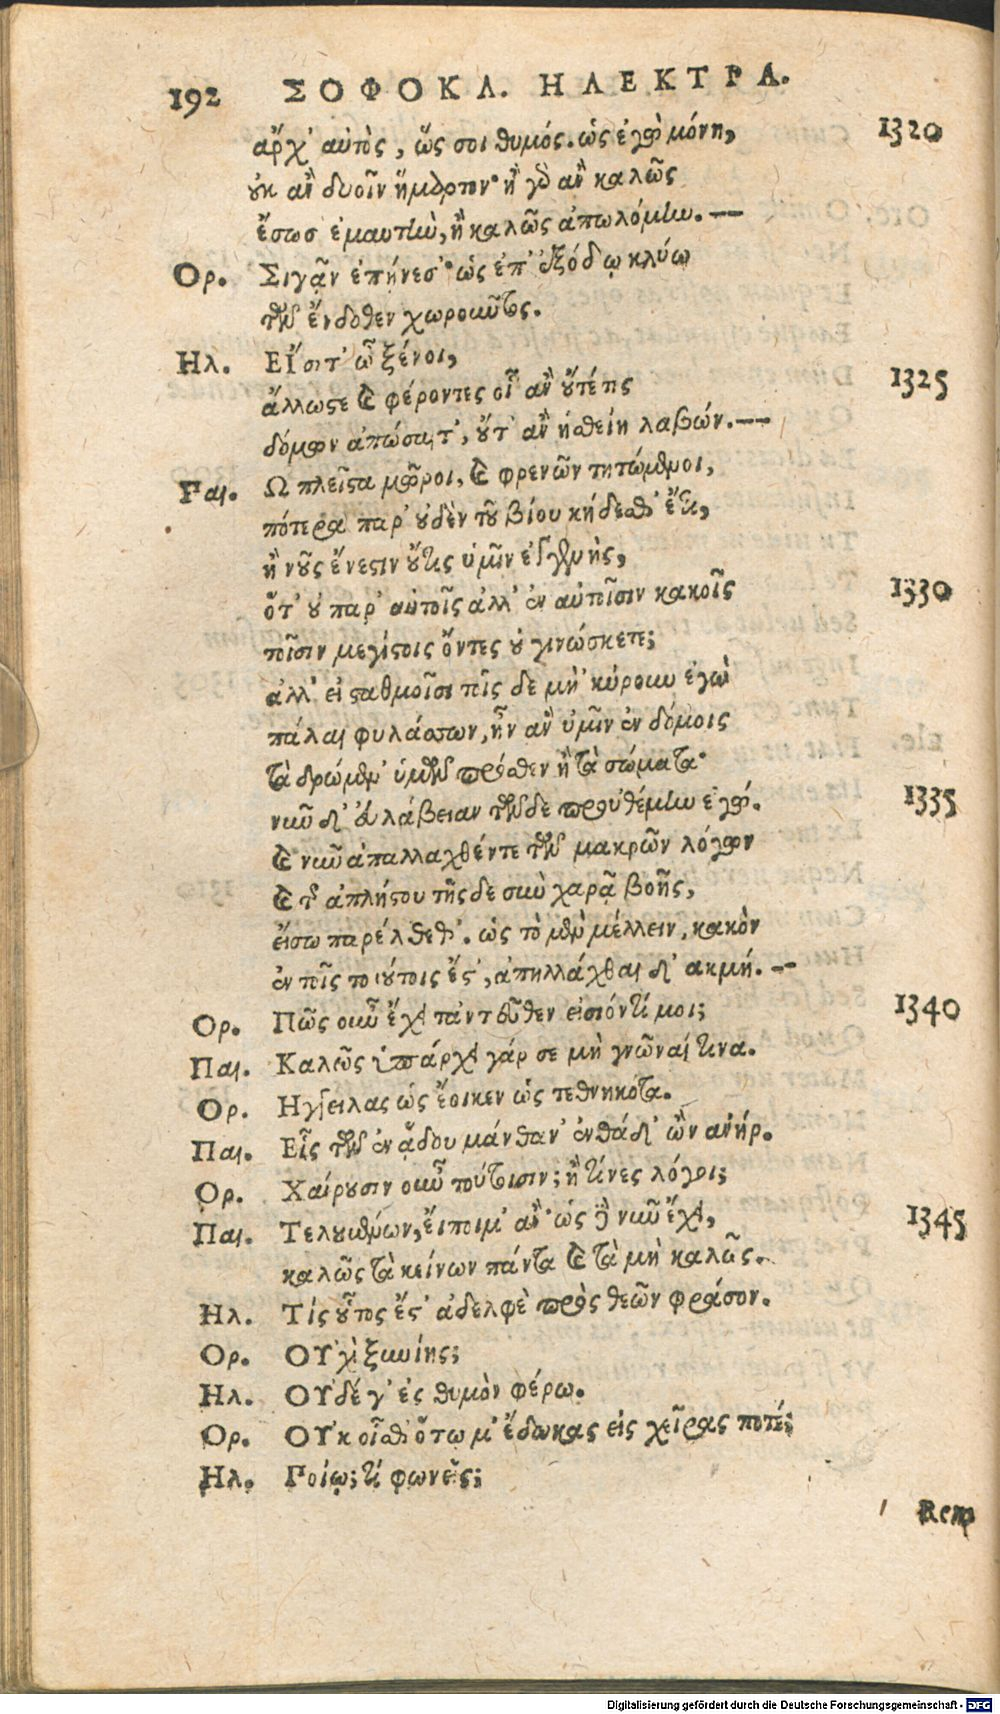 192 ΣΟΦΟΚΛ. ΗΛΕΚΤΡΑ.
ἄρχ' αὐτὸς, ὥς σοι θυμός. ὡς ἐγὼ μόνη, 1320
οὐκ ἂν δυοῖν ἥμαρτον· ἢ γὰρ ἂν καλῶς
ἔσωσ' ἐμαυτὴν, ἢ καλῶς ἀπωλόμην. --
Ορ. Σιγᾷν ἐπῄνεσ'· ὡς ἐπ' ἐξόδῳ κλύω
τῶν ἔνδοθεν χωροῦντος.
Ηλ. Εἴσιτ' ὦ ξένοι,
ἄλλως τε καὶ φέροντες οἷ' ἂν οὔτέ τις 1325
δόμων ἀπώσαιτ', οὔτ' ἂν ἡσθείη λαβών. --
Παι. Ω πλεῖστα μῶροι, καὶ φρενῶν τητώμενοι,
πότερα παρ' οὐδὲν τοῦ βίου κήδεσθ' ἔτι,
ἢ νοῦς ἔνεστιν οὔτις ὑμῖν ἐγγενὴς,
ὅτ' οὐ παρ' αὐτοῖς ἀλλ' ἐν αὐτοῖσιν κακοῖς 1330
τοῖσιν μεγίστοις ὄντες οὐ γινώσκετε;
ἀλλ' εἰ σταθμοῖσι τοῖς δε μὴ 'κύρουν ἐγὼ
πάλαι φυλάσσων, ἦν ἂν ὑμῖν ἐν δόμοις
τὰ δρώμεν' ὑμῶν πρόσθεν ἢ τὰ σώματα·
νῦν δ' εὐλάβειαν τῶνδε προυθέμην ἐγώ. 1335
καὶ νῦν ἀπαλλαχθέντε τῶν μακρῶν λόγων
καὶ τῆς ἀπλήστου τῆσδε σὺν χαρᾷ βοῆς,
εἴσω παρέλθεθ'. ὡς τὸ μὲν μέλλειν, κακὸν
ἐν τοῖς τοιούτοις ἔστ', ἀπηλλάχθαι δ' ἀκμή. --
Ορ. Πῶς οὖν ἔχει τἀντεῦθεν εἰσιόντι μοι; 1340
Παι. Καλῶς ὑπάρχει γάρ σε μὴ γνῶναι τινα.
Ορ. Ηγγειλας ὡς ἔοικεν ὡς τεθνηκότα.
Παι. Εἷς τῶν ἐν ᾅδου μάνθαν' ἐνθάδ' ὢν ἀνήρ.
Ορ. Χαίρουσιν οὖν τούτοισιν; ἢ τίνες λόγοι;
Παι. Τελουμένων, εἴποιμ' ἄν· ὡς δὲ νῦν ἔχει, 1345
καλῶς τὰ κείνων πάντα καὶ τὰ μὴ καλῶς.
Ηλ. Τίς οὗτος ἔστ' ἀδελφὲ πρὸς θεῶν φράσον.
Ορ. ΟΥ'χὶ ξυνίης;
Ηλ. ΟΥ'δέ γ' ἐς θυμὸν φέρω.
Ορ. ΟΥ'κ οἶσθ' ὅτῳ μ' ἔδωκας εἰς χεῖρας ποτέ;
Ηλ. Ποίῳ; τί φωνεῖς;
Rem
Digitalisierung gefördert durch die Deutsche Forschungsgemeinschaft - DFG